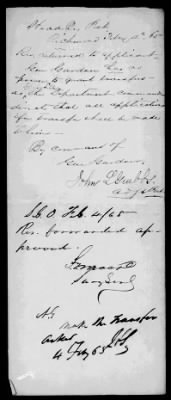 Richmond Feby 4th 65
Res. returned to applicant.
Gen Gardner has no
power to grant transfers
as the Department commander
directs that all applications
for transfer shall be made
to him
By command of
Gen Gardner
John L Grubbs
S.G.O. Feb. 4/65
Res. forwarded ap-
proved.
Surg Genl
make the transfer
asked
4 Feby 65